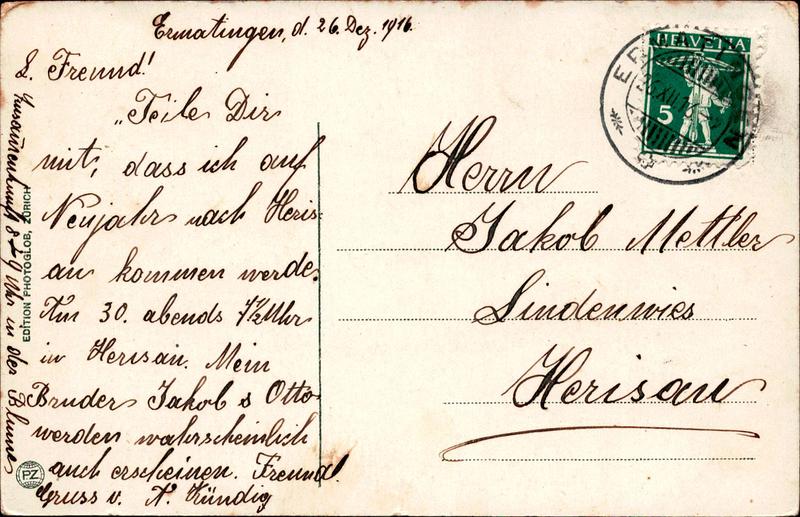 Ermatingen, d. 26. Dez. 1916.
L. Freund!
„Teile Dir
mit, dass ich auf
Neujahr nach Heris-
au kommen werde.
Am 30. abends 7½ Uhr
in Herisau. Mein
Bruder Jakob & Otto
werden wahrscheinlich
auch erscheinen. Freundl.
Gruss v. A. Kündig
Zusammenkunft 8-9 Uhr in der Blume
EDITION PHOTOGLOB, ZÜRICH
PZ
HELVETIA
5
Herrn
Jakob Mettler
Lindenwies
Herisau